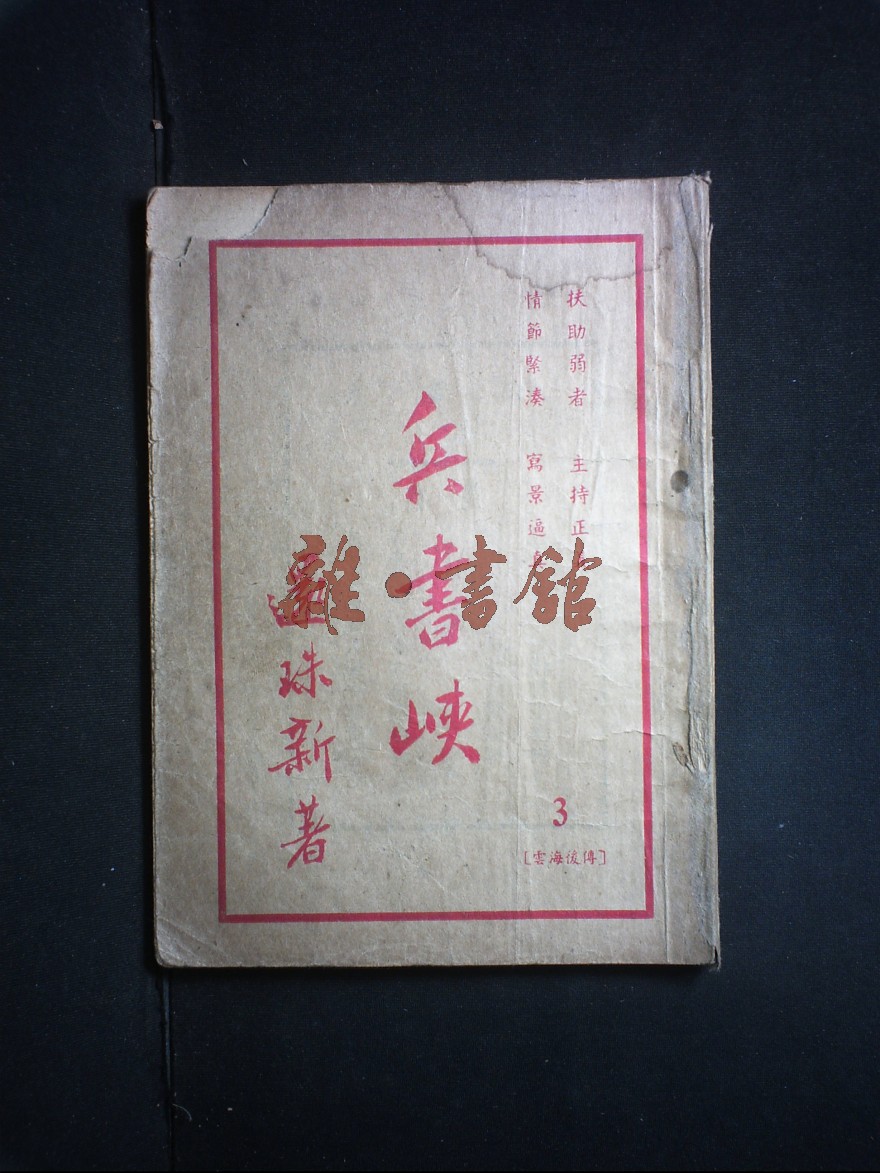 扶助弱者 主持正
情節緊湊 寫景逼
兵書峽
還珠新著
3
[雲海後傳]
雜·書館